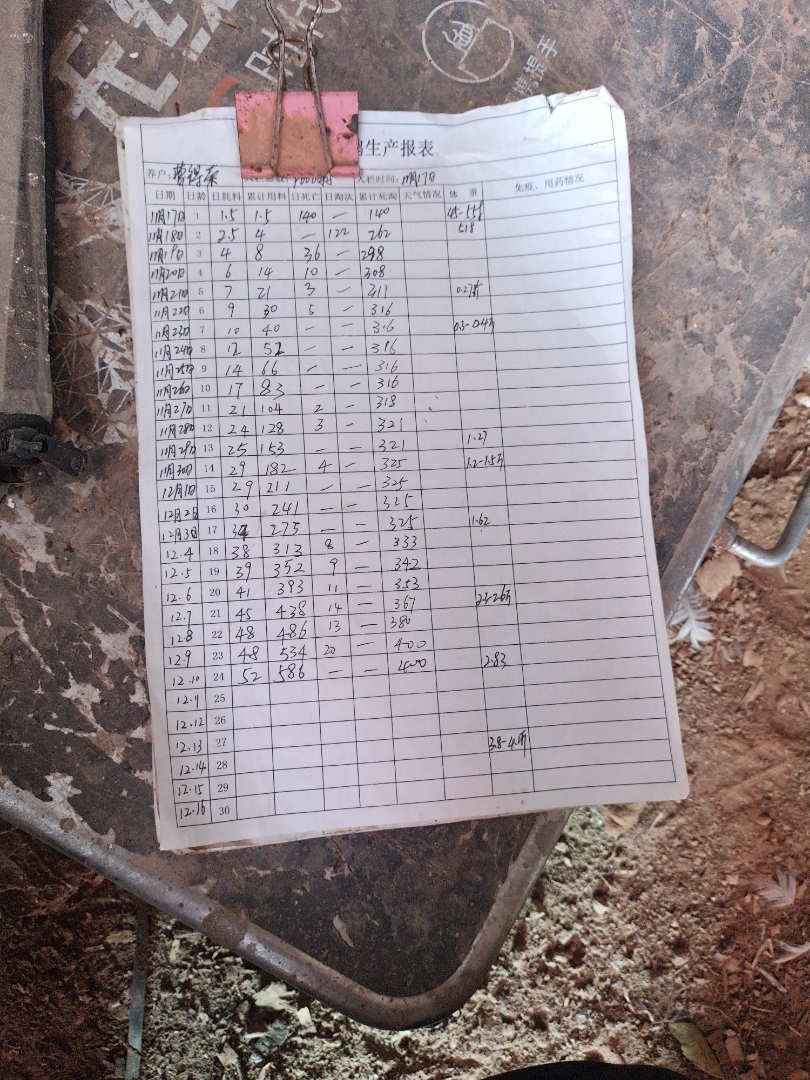 生产报表
养户: 入栏时间: 11月17日
日期 日龄 日耗料 累计用料 日死亡 日淘汰 累计死淘 天气情况 体 重 免疫、用药情况
11月17日 1 1.5 1.5 140 — 140 45-55g
11月18日 2 2.5 4 — 122 262 518
11月19日 3 4 8 36 — 298
11月20日 4 6 14 10 — 308
11月21日 5 7 21 3 — 311 0.27斤
11月22日 6 9 30 5 — 316
11月23日 7 10 40 — — 316 0.3-0.4斤
11月24日 8 12 52 — — 316
11月25日 9 14 66 — — 316
11月26日 10 17 83 — — 316
11月27日 11 21 104 2 — 318
11月28日 12 24 128 3 — 321
11月29日 13 25 153 — — 321 1.27
11月30日 14 29 182 4 — 325 1.2-1.5斤
12月1日 15 29 211 — — 325
12月2日 16 30 241 — — 325
12月3日 17 34 275 — — 325 1.62
12.4 18 38 313 8 — 333
12.5 19 39 352 9 — 342
12.6 20 41 393 11 — 353
12.7 21 45 438 14 — 367 2.3-2.6斤
12.8 22 48 486 13 — 380
12.9 23 48 534 20 — 400
12.10 24 52 586 — — 400 2.83
12.11 25
12.12 26
12.13 27 3.8-4.1斤
12.14 28
12.15 29
12.16 30